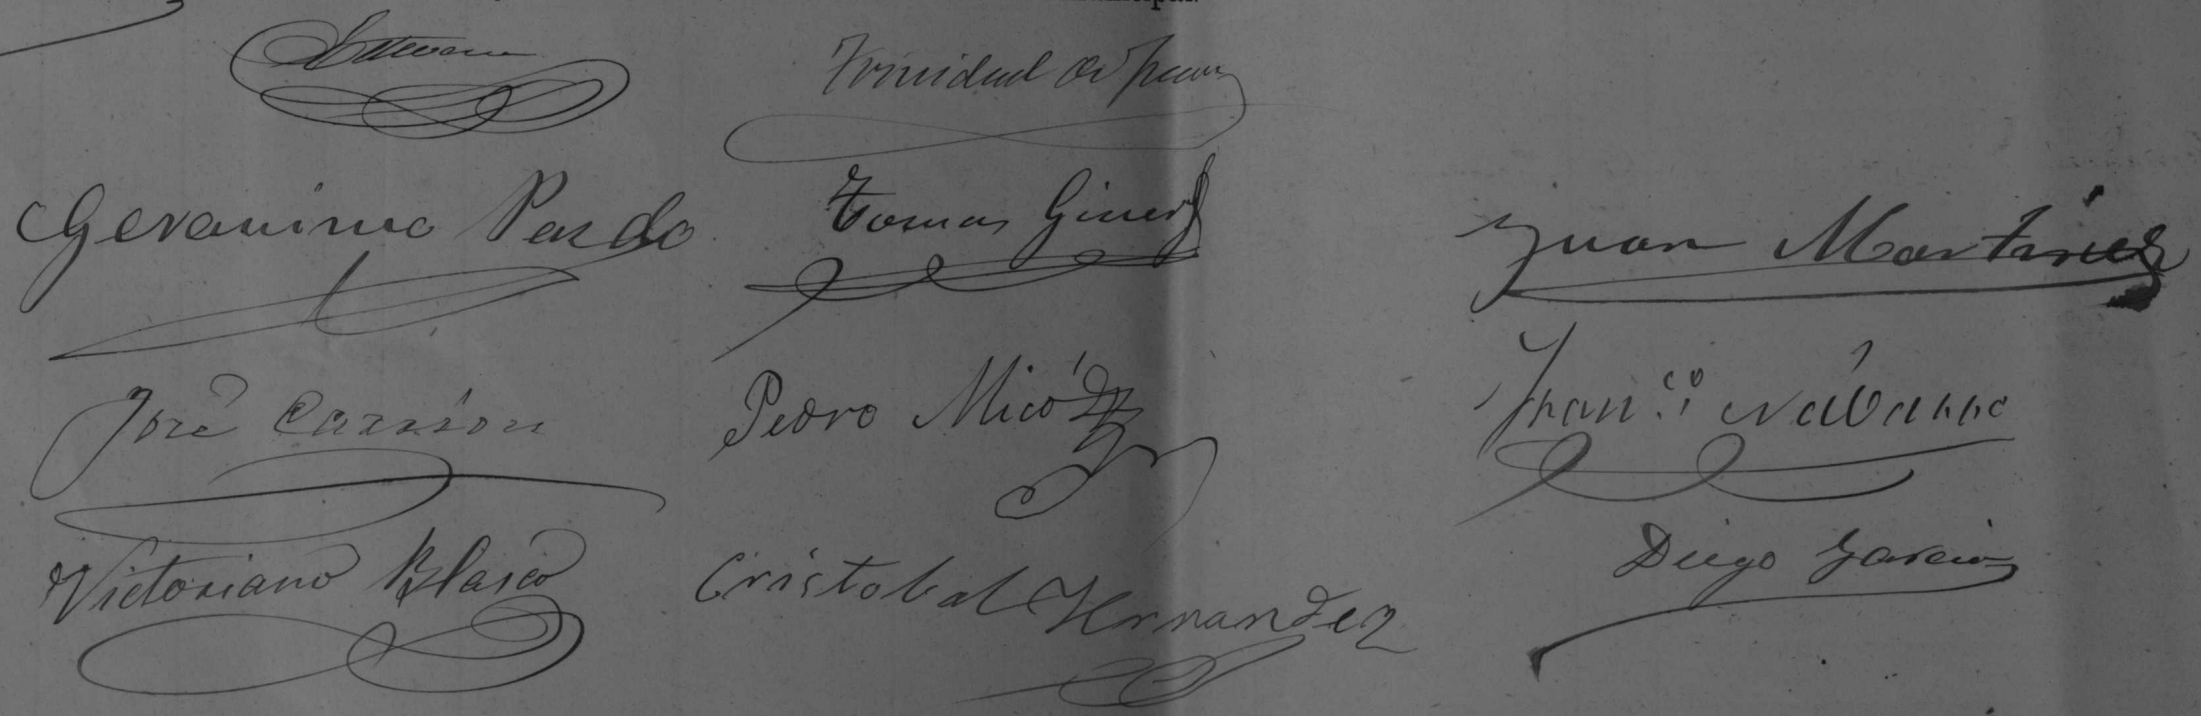 Trinidad
Geronimo Pardo Tomas Giner Juan Martines
José Carrion Pedro Micó Fran.co Nabarro
Victoriano Blasco Cristobal Hernandez Diego Garcia